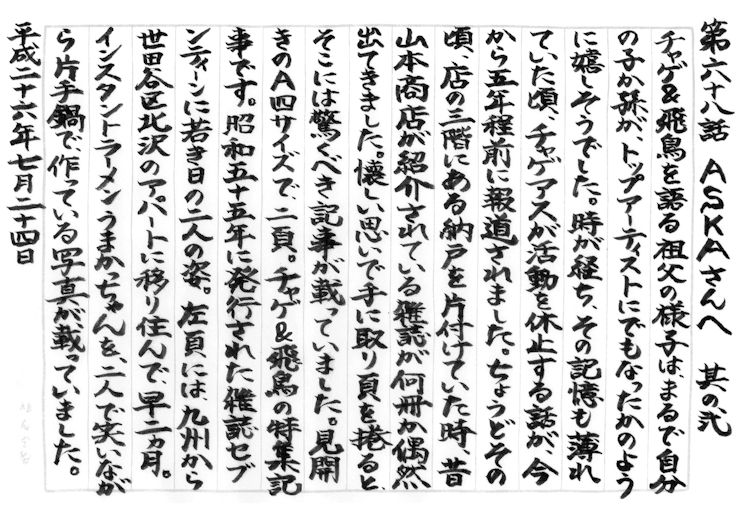 第六十八話　ASKAさんへ　其の弐
チャゲ&飛鳥を語る祖父の様子は、まるで自分
の子か孫がトップアーティストにでもなったかのよう
に嬉しそうでした。時が経ち、その記憶も薄れ
ていた頃、チャゲアスが活動を休止する話が、今
から五年程前に報道されました。ちょうどその
頃、店の三階にある納戸を片付けていた時、昔
山本商店が紹介されている雑誌が何冊か偶然
出てきました。懐しい思いで手に取り頁を捲ると、
そこには驚くべき記事が載っていました。見開
きのA四サイズで、二頁。チャゲ&飛鳥の特集記
事です。昭和五十五年に発行された雑誌セブ
ンティーンに若き日の二人の姿。左頁には、九州から
世田谷区北沢のアパートに移り住んで、早二ヵ月。
インスタントラーメンうまかっちゃんを、二人で笑いなが
ら片手鍋で、作っている写真が載っていました。
平成二十六年七月二十四日